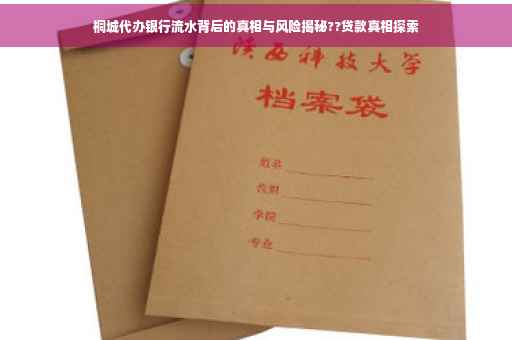 桐城代办银行流水背后的真相与风险揭秘??贷款真相探索
陕西科技大学
档案袋
姓名
学院
专业